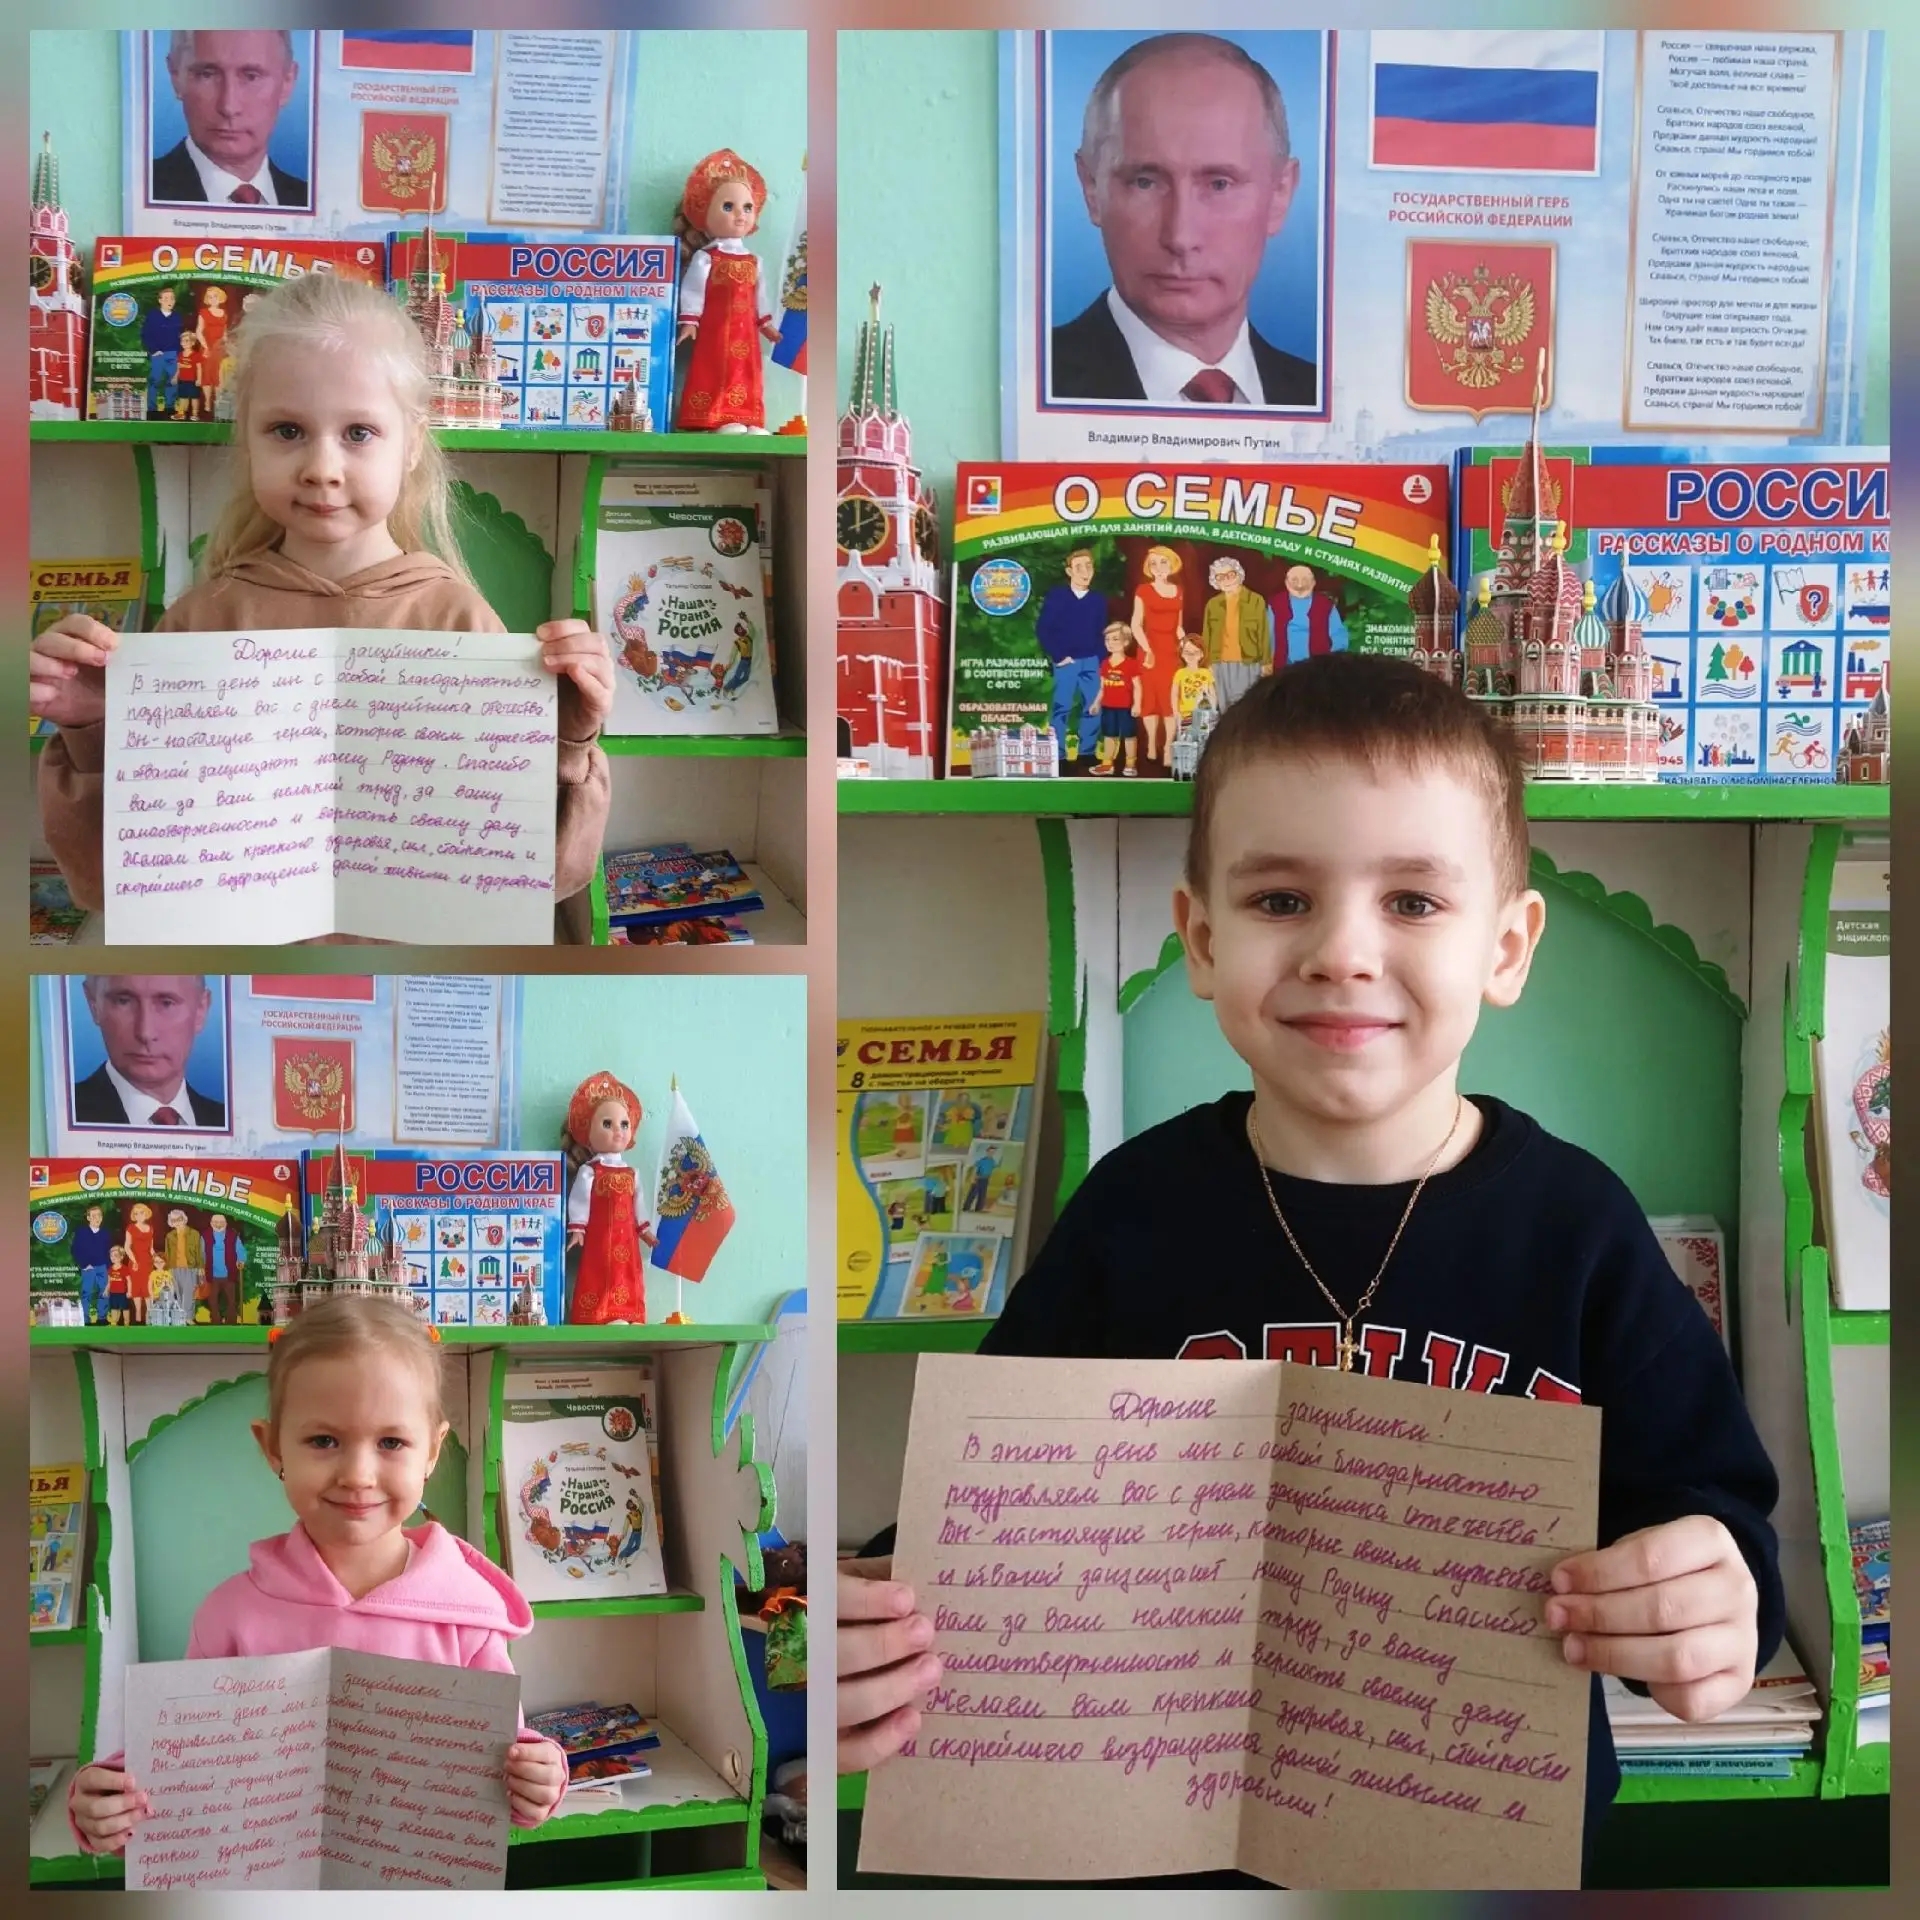 ГОСУДАРСТВЕННЫЙ ГЕРБ
РОССИЙСКОЙ ФЕДЕРАЦИИ
Владимир Владимирович Путин
О СЕМЬЕ
РАЗВИВАЮЩАЯ ИГРА ДЛЯ ЗАНЯТИЙ ДОМА, В ДЕТСКОМ
ИГРА РАЗРАБОТАНА
В СООТВЕТСТВИИ
С ФГОС
РОССИЯ
РАССКАЗЫ О РОДНОМ КРАЕ
СЕМЬЯ
8
Детская энциклопедия
Чевостик
Татьяна Попова
Наша
страна
Россия
Дорогие защитники!
В этот день мы с особой благодарностью
поздравляем вас с днем защитника отечества!
Вы-настоящие герои, которые своим мужеством
и отвагой защищают нашу Родину. Спасибо
вам за ваш нелегкий труд, за вашу
самоотверженность и верность своему делу.
Желаем вам крепкого здоровья, сил, стойкости и
скорейшего возвращения домой живыми и здоровыми!
Россия — священная наша держава,
Россия — любимая наша страна.
Могучая воля, великая слава —
Твоё достоянье на все времена!
Славься, Отечество наше свободное,
Братских народов союз вековой,
Предками данная мудрость народная!
Славься, страна! Мы гордимся тобой!
От южных морей до полярного края
Раскинулись наши леса и поля.
Одна ты на свете! Одна ты такая —
Хранимая Богом родная земля!
Славься, Отечество наше свободное,
Братских народов союз вековой,
Предками данная мудрость народная!
Славься, страна! Мы гордимся тобой!
Широкий простор для мечты и для жизни
Грядущие нам открывают года.
Нам силу даёт наша верность Отчизне.
Так было, так есть и так будет всегда!
Славься, Отечество наше свободное,
Братских народов союз вековой,
Предками данная мудрость народная!
Славься, страна! Мы гордимся тобой!
ГОСУДАРСТВЕННЫЙ ГЕРБ
РОССИЙСКОЙ ФЕДЕРАЦИИ
Владимир Владимирович Путин
О СЕМЬЕ
РАЗВИВАЮЩАЯ ИГРА ДЛЯ ЗАНЯТИЙ ДОМА, В ДЕТСКОМ САДУ И СТУДИЯХ РАЗВИТИЯ
ИГРА РАЗРАБОТАНА
В СООТВЕТСТВИИ
С ФГОС
ОБРАЗОВАТЕЛЬНАЯ
ОБЛАСТЬ:
РОССИ
РАССКАЗЫ О РОДНОМ К
1945
ПОЗНАВАТЕЛЬНОЕ И РЕЧЕВОЕ РАЗВИТИЕ
СЕМЬЯ
8 демонстрационных картинок
с текстом на обороте
Детская
энциклоп
Дорогие защитники!
В этот день мы с особой благодарностью
поздравляем вас с днем защитника отечества!
Вы-настоящие герои, которые своим мужество
и отвагой защищают нашу Родину. Спасибо
вам за ваш нелегкий труд, за вашу
самоотверженность и верность своему делу.
Желаем вам крепкого здоровья, сил, стойкости
и скорейшего возвращения домой живыми и
здоровыми!
ГОСУДАРСТВЕННЫЙ ГЕРБ
РОССИЙСКОЙ ФЕДЕРАЦИИ
Владимир Владимирович Путин
О СЕМЬЕ
РАЗВИВАЮЩАЯ ИГРА ДЛЯ ЗАНЯТИЙ ДОМА, В ДЕТСКОМ САДУ И СТУДИЯХ
РОССИЯ
РАССКАЗЫ О РОДНОМ КРАЕ
Чевостик
Татьяна Попова
Наша
страна
Россия
Дорогие защитники!
В этот день мы с особой благодарностью
поздравляем вас с днем защитника отечества!
Вы-настоящие герои, которые своим
и отвагой защищают нашу Родину. Спасибо
за ваш нелегкий труд, за вашу самоотвер
женность и верность своему делу. Желаем вам
крепкого здоровья, сил, стойкости и скорейшего
возвращения домой живыми и здоровыми!